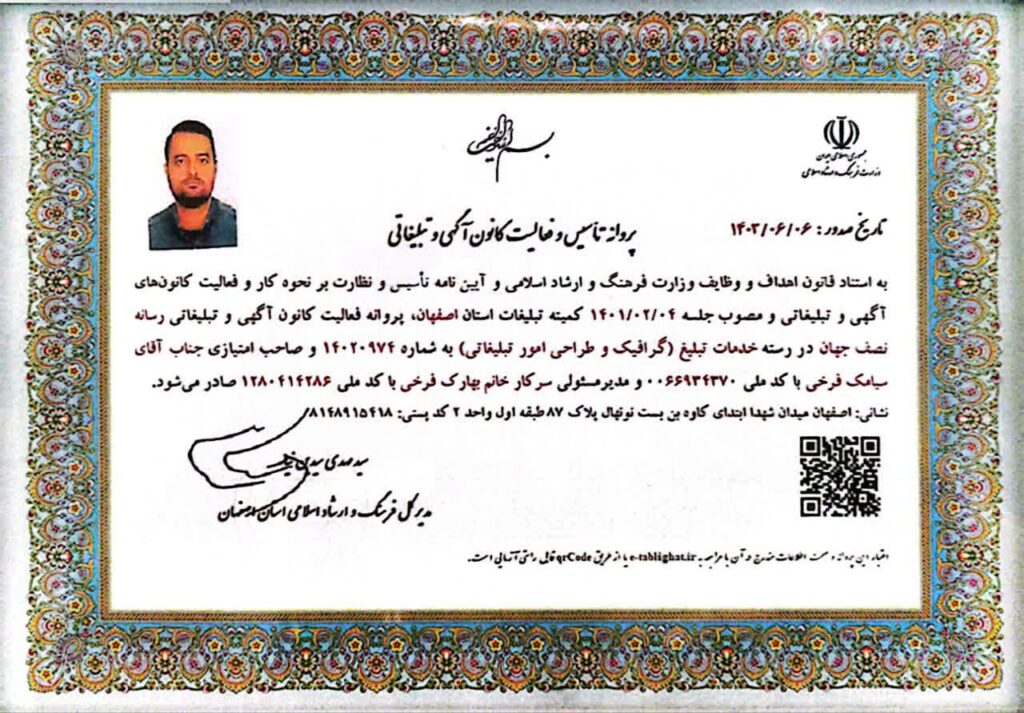 بسم الله الرحمن الرحیم
جمهوری اسلامی ایران
وزارت فرهنگ و ارشاد اسلامی
تاریخ صدور: ۱۴۰۳/۰۶/۰۶
پروانه تأسیس و فعالیت کانون آگهی و تبلیغاتی
به استناد قانون اهداف و وظایف وزارت فرهنگ و ارشاد اسلامی و آیین نامه تأسیس و نظارت بر نحوه کار و فعالیت کانون‌های
آگهی و تبلیغاتی و مصوب جلسه ۱۴۰۱/۰۲/۰۴ کمیته تبلیغات استان اصفهان، پروانه فعالیت کانون آگهی و تبلیغاتی رسانه
نصف جهان در رسته خدمات تبلیغ (گرافیک و طراحی امور تبلیغاتی) به شماره ۱۴۰۲۰۹۷۴ و صاحب امتیازی جناب آقای
سیامک فرخی با کد ملی ۰۰۶۶۹۳۴۳۷۰ و مدیرمسئولی سرکار خانم بهارک فرخی با کد ملی ۱۲۸۰۴۱۴۲۸۶ صادر می‌شود.
نشانی: اصفهان میدان شهدا ابتدای کاوه بن بست نونهال پلاک ۸۷ طبقه اول واحد ۲ کد پستی: ۸۱۴۸۹۱۵۴۱۸
سید مهدی سیدین
مدیر کل فرهنگ و ارشاد اسلامی استان اصفهان
اعتبار این پروانه و صحت اطلاعات مندرج در آن با مراجعه به e-tablighat.ir یا از طریق qrCode قابل راستی آزمایی است.